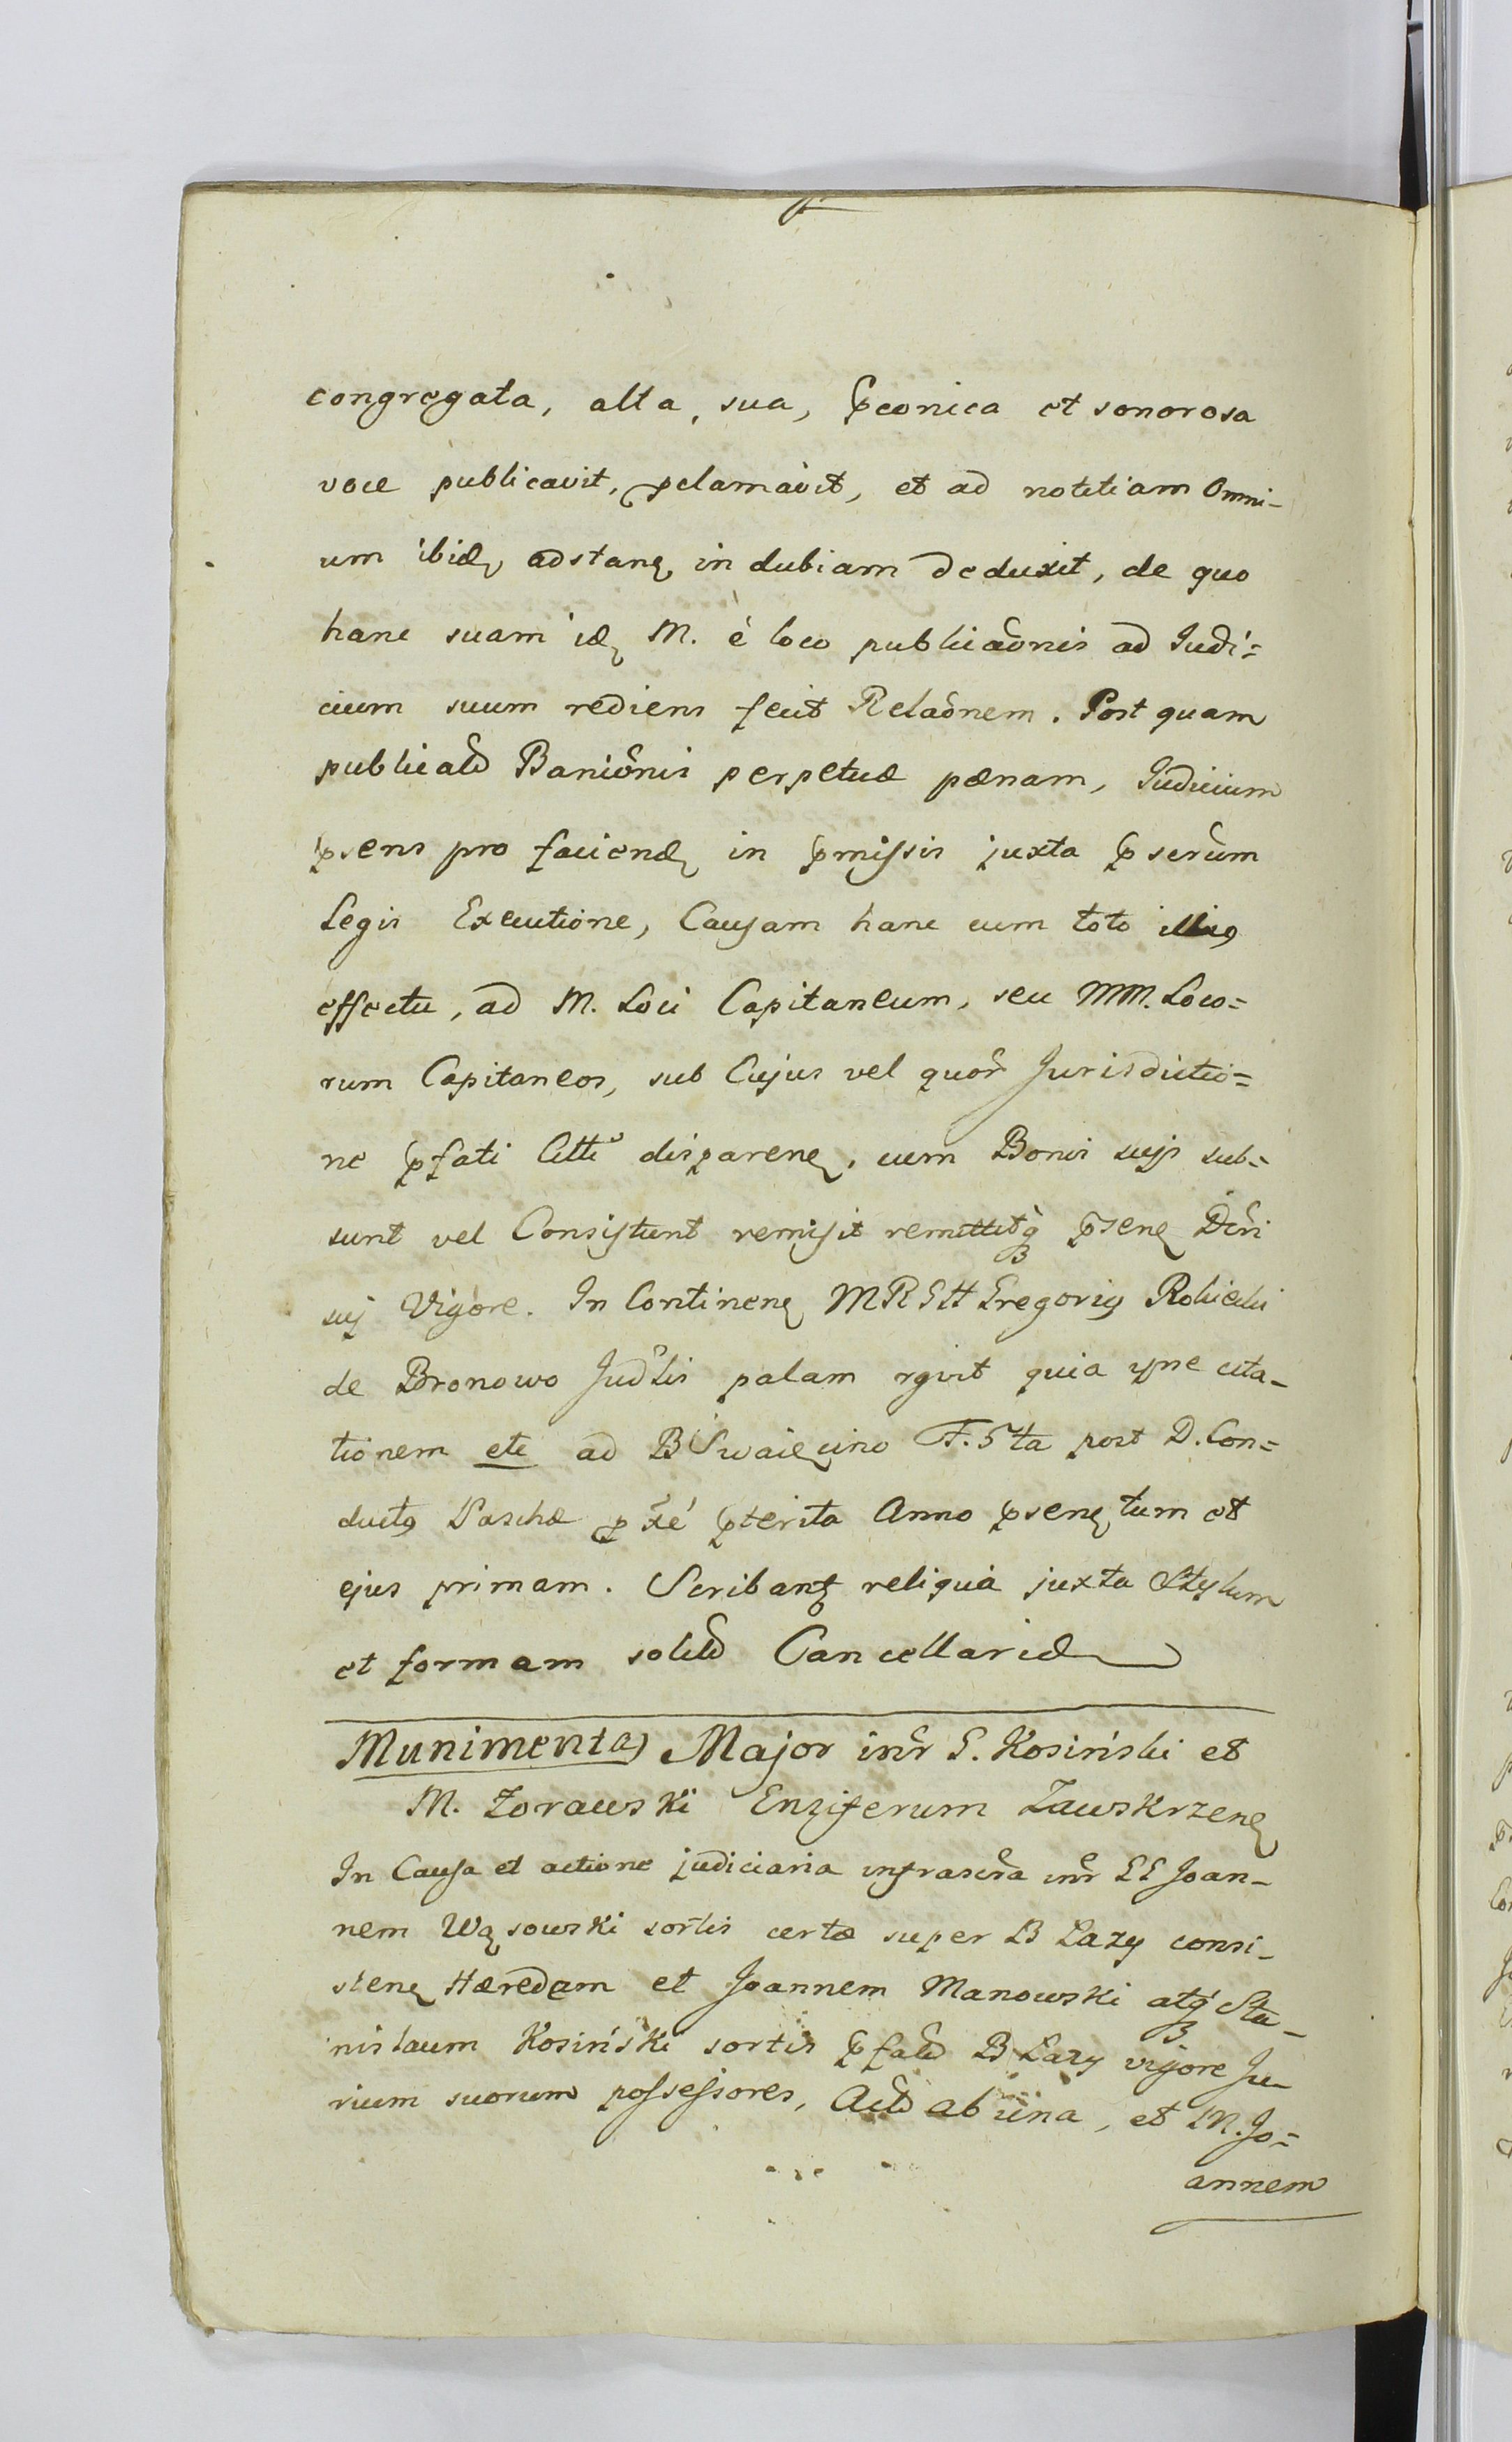 congregata, alta, sua, pconica et sonorosa
voce publicavit, pclamavit, et ad notitiam Omni-
um ibid adstan indubiam deduxit, de quo
hanc suam id M. è loco publicaonis ad Judi=
cium suum rediens fecit Relaonem. Post quam
publicatæ Banionis perpetuæ pænam, Judicium
psens pro faciend in pmissis juxta pscrum
Legis Executione, Causam hanc cum toto illius
effectu, ad M. Loci Capitaneum, seu MM. Loco=
rum Capitaneos, sub Cujus vel quor Jurisdictio=
ne pfati Citti disparen, cum Bonis suis sub=
sunt vel Consistunt remisit remittitq psen Dcri
sui Vigore. In Continen MRGH Gregorius Rokicki
de Bronowo Judlis palam rgvit quia cita-
tionem etc ad B Swaięcino F. 5ta post D. Con=
ductus Paschæ pxe pterita Anno psen tum et
ejus primam. Scribant reliqua juxta Stylum
et formam solitæ Cancellariæ
Munimenta Major intr G. Kosiński et
M. Zorawski Ensiferum Zawskrzen
In Causa et actione judiciaria infrascra intr GG Joan-
nem Wąsowski sortis certæ super B Lazy consi-
sten Hæredem et Joannem Manowski atq Sta-
nislaum Kosiński sortis pfatæ B Lazy vigore Ju-
rium suorum possessores, Act ab una, et M. Jo=
annem